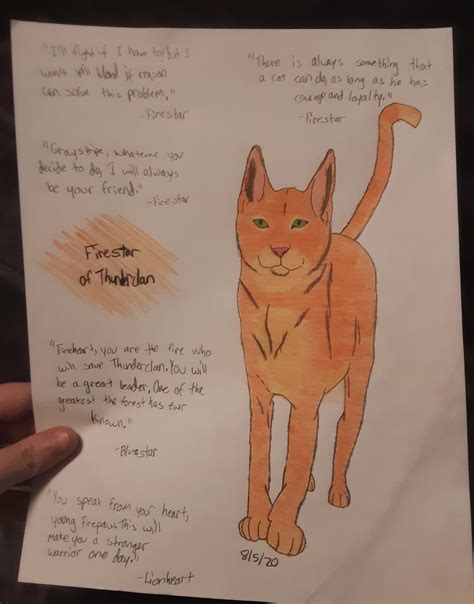 "I'll fight if I have to, but I
won't spill blood if reason
can solve this problem."
-Firestar
"There is always something that
a cat can do, as long as he has
courage and loyalty."
-Firestar
"Graystripe, whatever you
decide to do, I will always
be your friend."
-Firestar
Firestar
of Thunderclan
"Fireheart, you are the fire who
will save Thunderclan. You will
be a great leader. One of the
greatest the forest has ever
known."
-Bluestar
"You speak from your heart,
young Firepaw. This will
make you a stronger
warrior one day."
-Lionheart
8/5/20